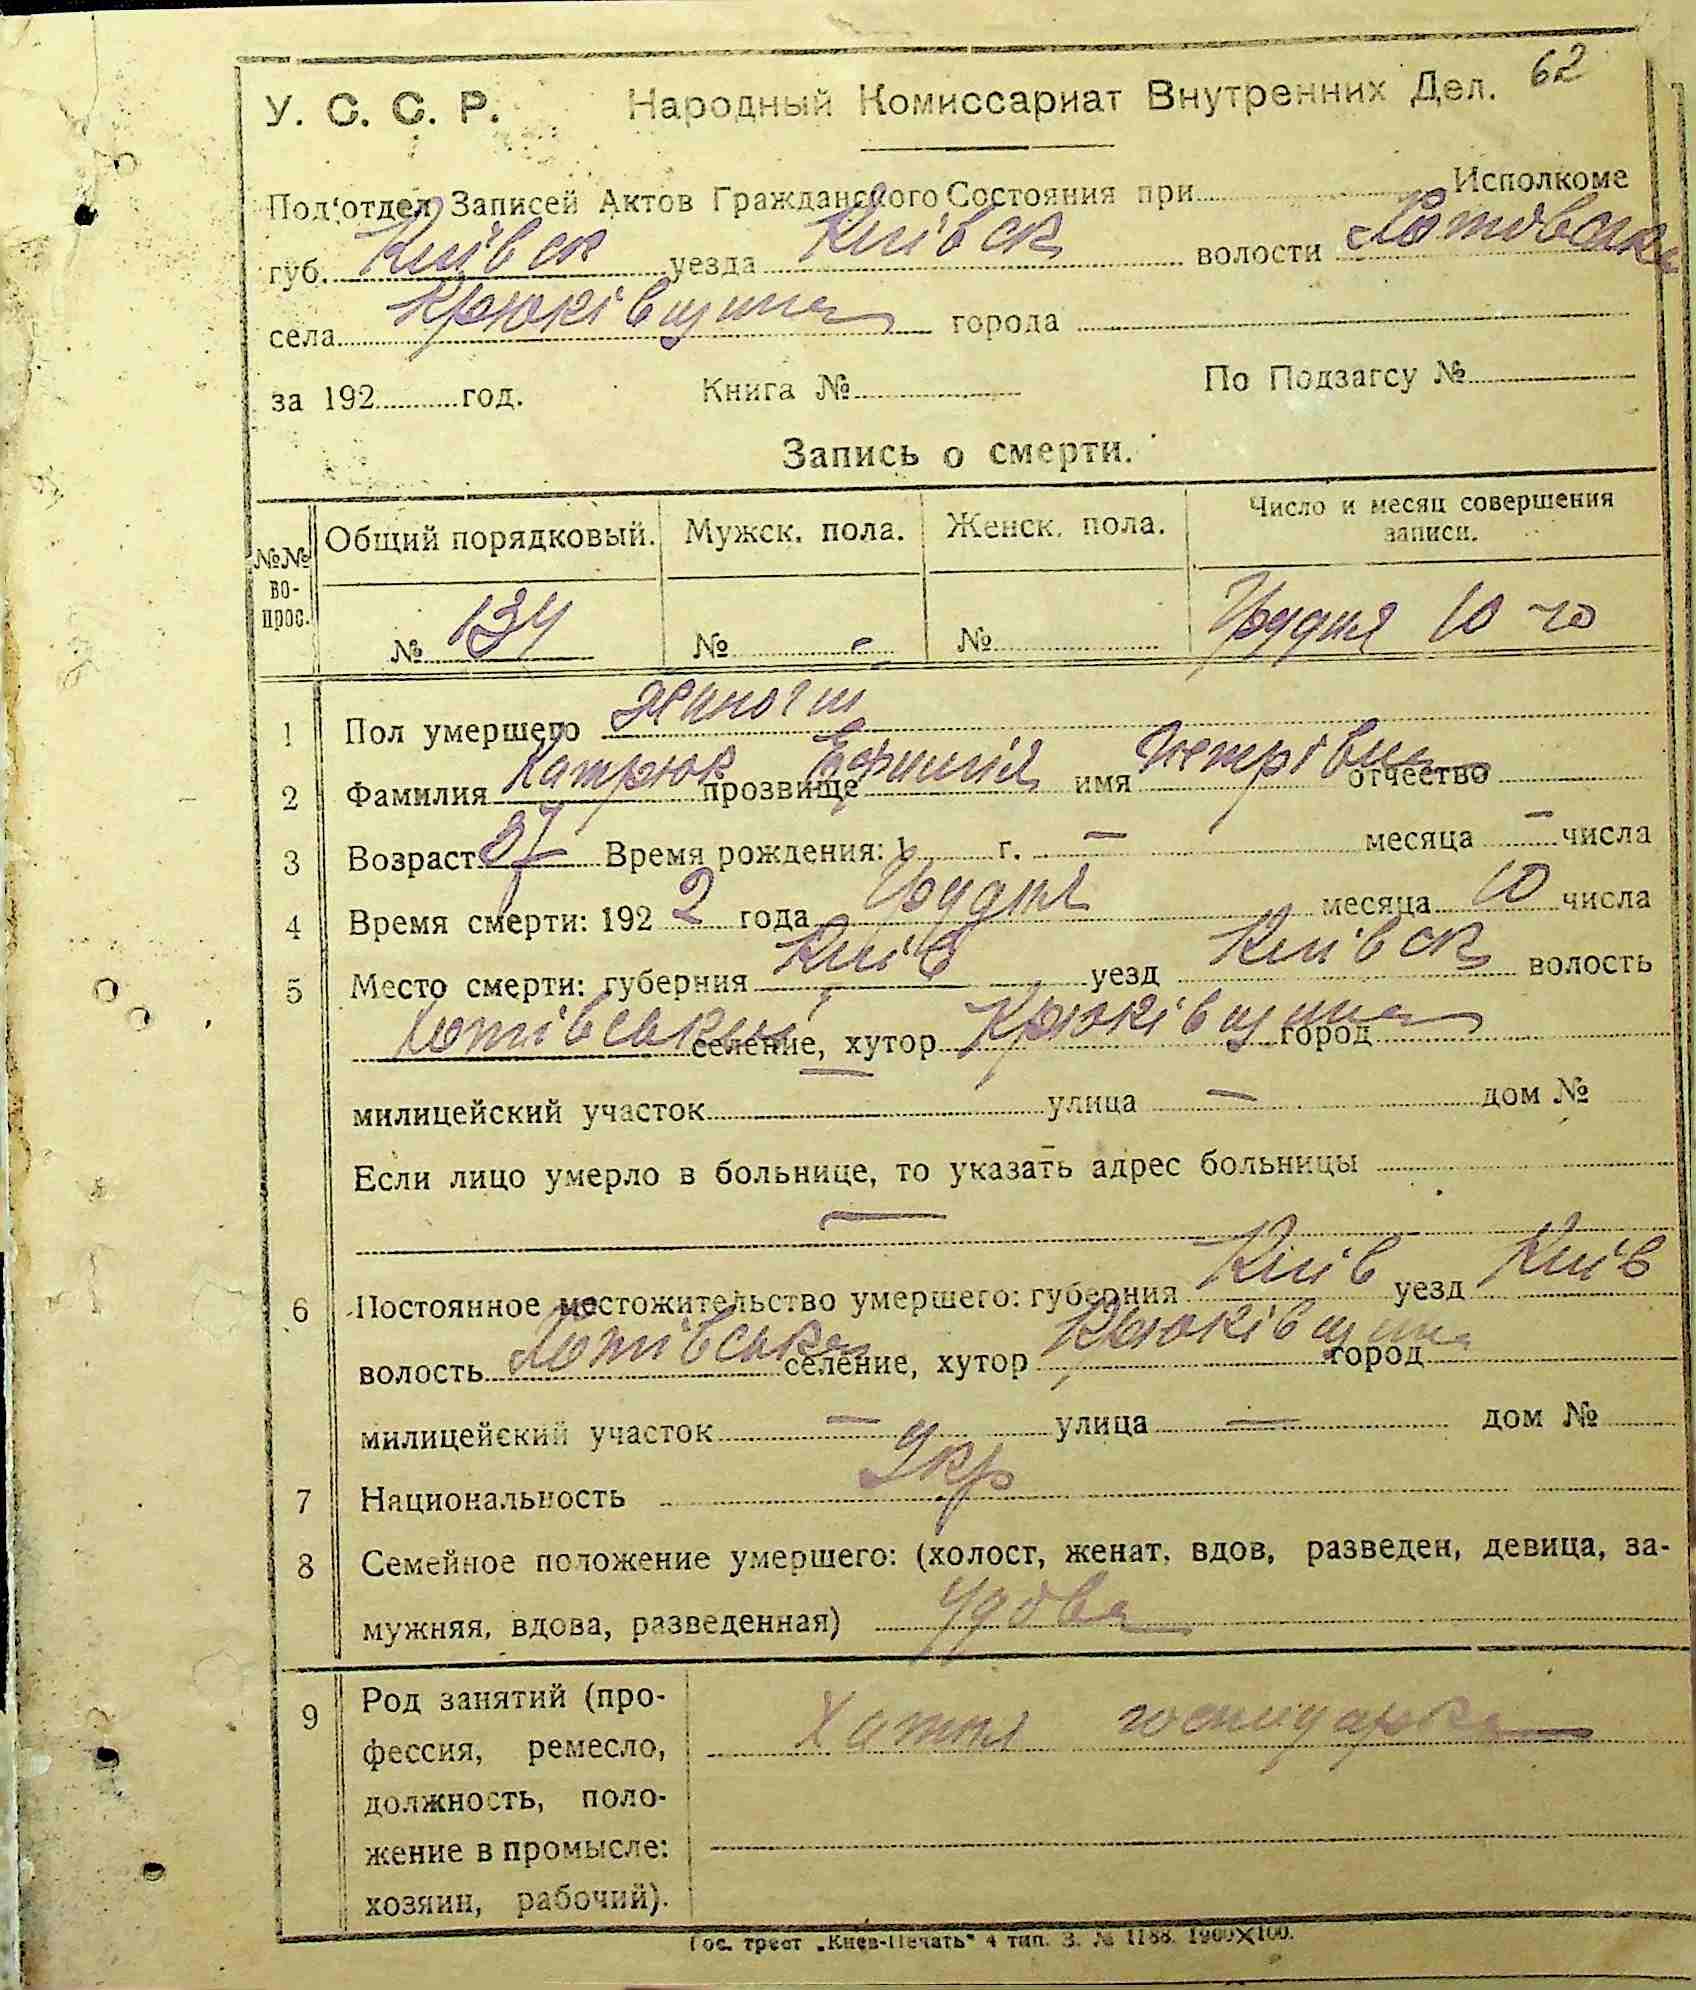 62
У. С. С. Р. Народный Комиссариат Внутренних Дел.
Под'отдел Записей Актов Гражданского Состояния при Исполкоме
губ. Київск уезда Київск волости Хотовська
села Крюківщина города
за 192 год. Книга № По Подзагсу №
Запись о смерти.
№№ вопрос. Общий порядковый. Мужск. пола. Женск. пола. Число и месяц совершения записи.
№ 134 № № Грудня 10-го
1 Пол умершего Жіночій
2 Фамилия Катрюк прозвище Ефимія имя Петрівна отчество
3 Возраст 87 Время рождения: 1 г. — месяца — числа
4 Время смерти: 1922 года Грудня месяца 10 числа
5 Место смерти: губерния Київ уезд Київск волость
Хотівська селение, хутор Крюківщина город
милицейский участок — улица — дом №
Если лицо умерло в больнице, то указать адрес больницы
—
6 Постоянное местожительство умершего: губерния Київ уезд Київ
волость Хотівська селение, хутор Крюківщина город
милицейский участок — улица — дом №
7 Национальность Укр
8 Семейное положение умершего: (холост, женат, вдов, разведен, девица, за-
мужняя, вдова, разведенная) Удова
9 Род занятий (про-
фессия, ремесло, Хатня господарка
должность, поло-
жение в промысле:
хозяин, рабочий).
Гос. трест „Киев-Печать" 4 тип. З. № 1188. 1900X100.